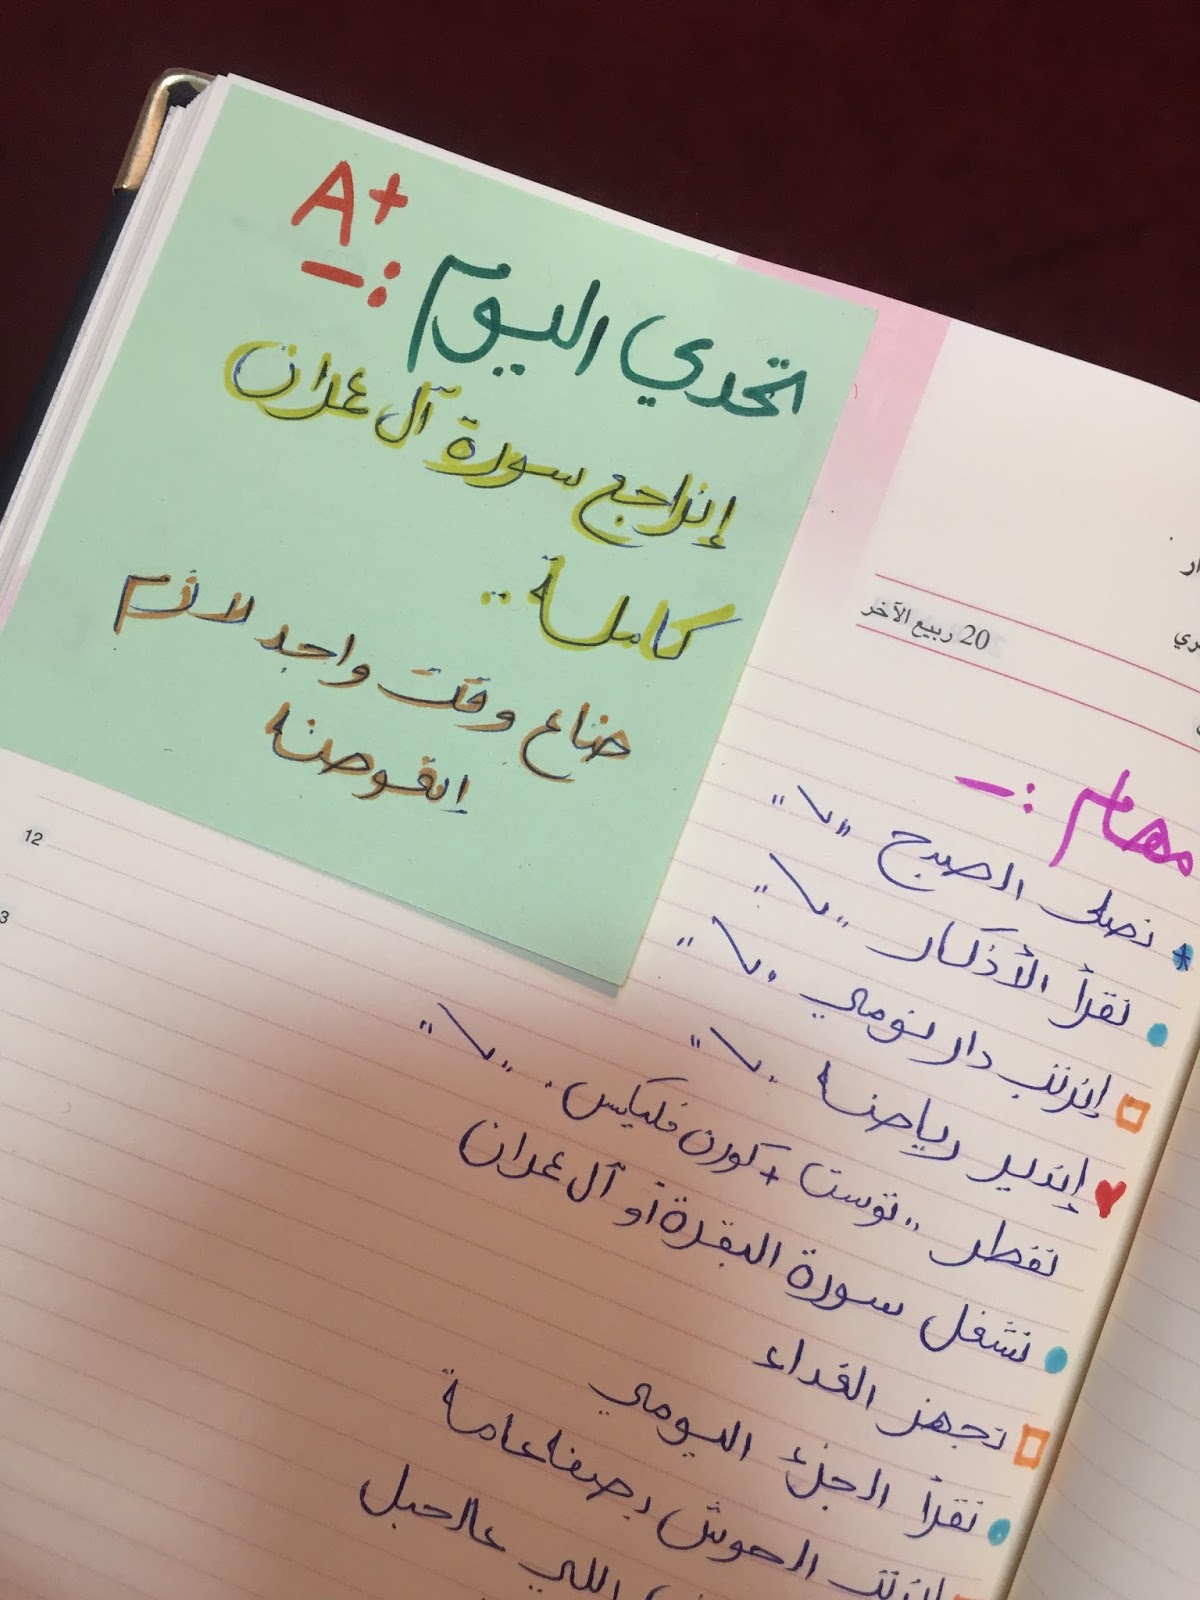 A+
اتحدي اليوم :-
إنراجع سورة آل عمران
كاملة ..
ضاع وقت واجد لازم
إنعوضنه
20 ربيع الآخر
12
3
مهام :-
نصلى الصبح
نقرأ الأذكار
إنرتب دار نومي
إندير رياضة
نفطر " توست + كورن فليكس .
نشغل سورة البقرة أو آل عمران
نجهز الغداء
نقرأ الجزء اليومي
إنرتب الحوش بصفة عامة
اللي عالحبل